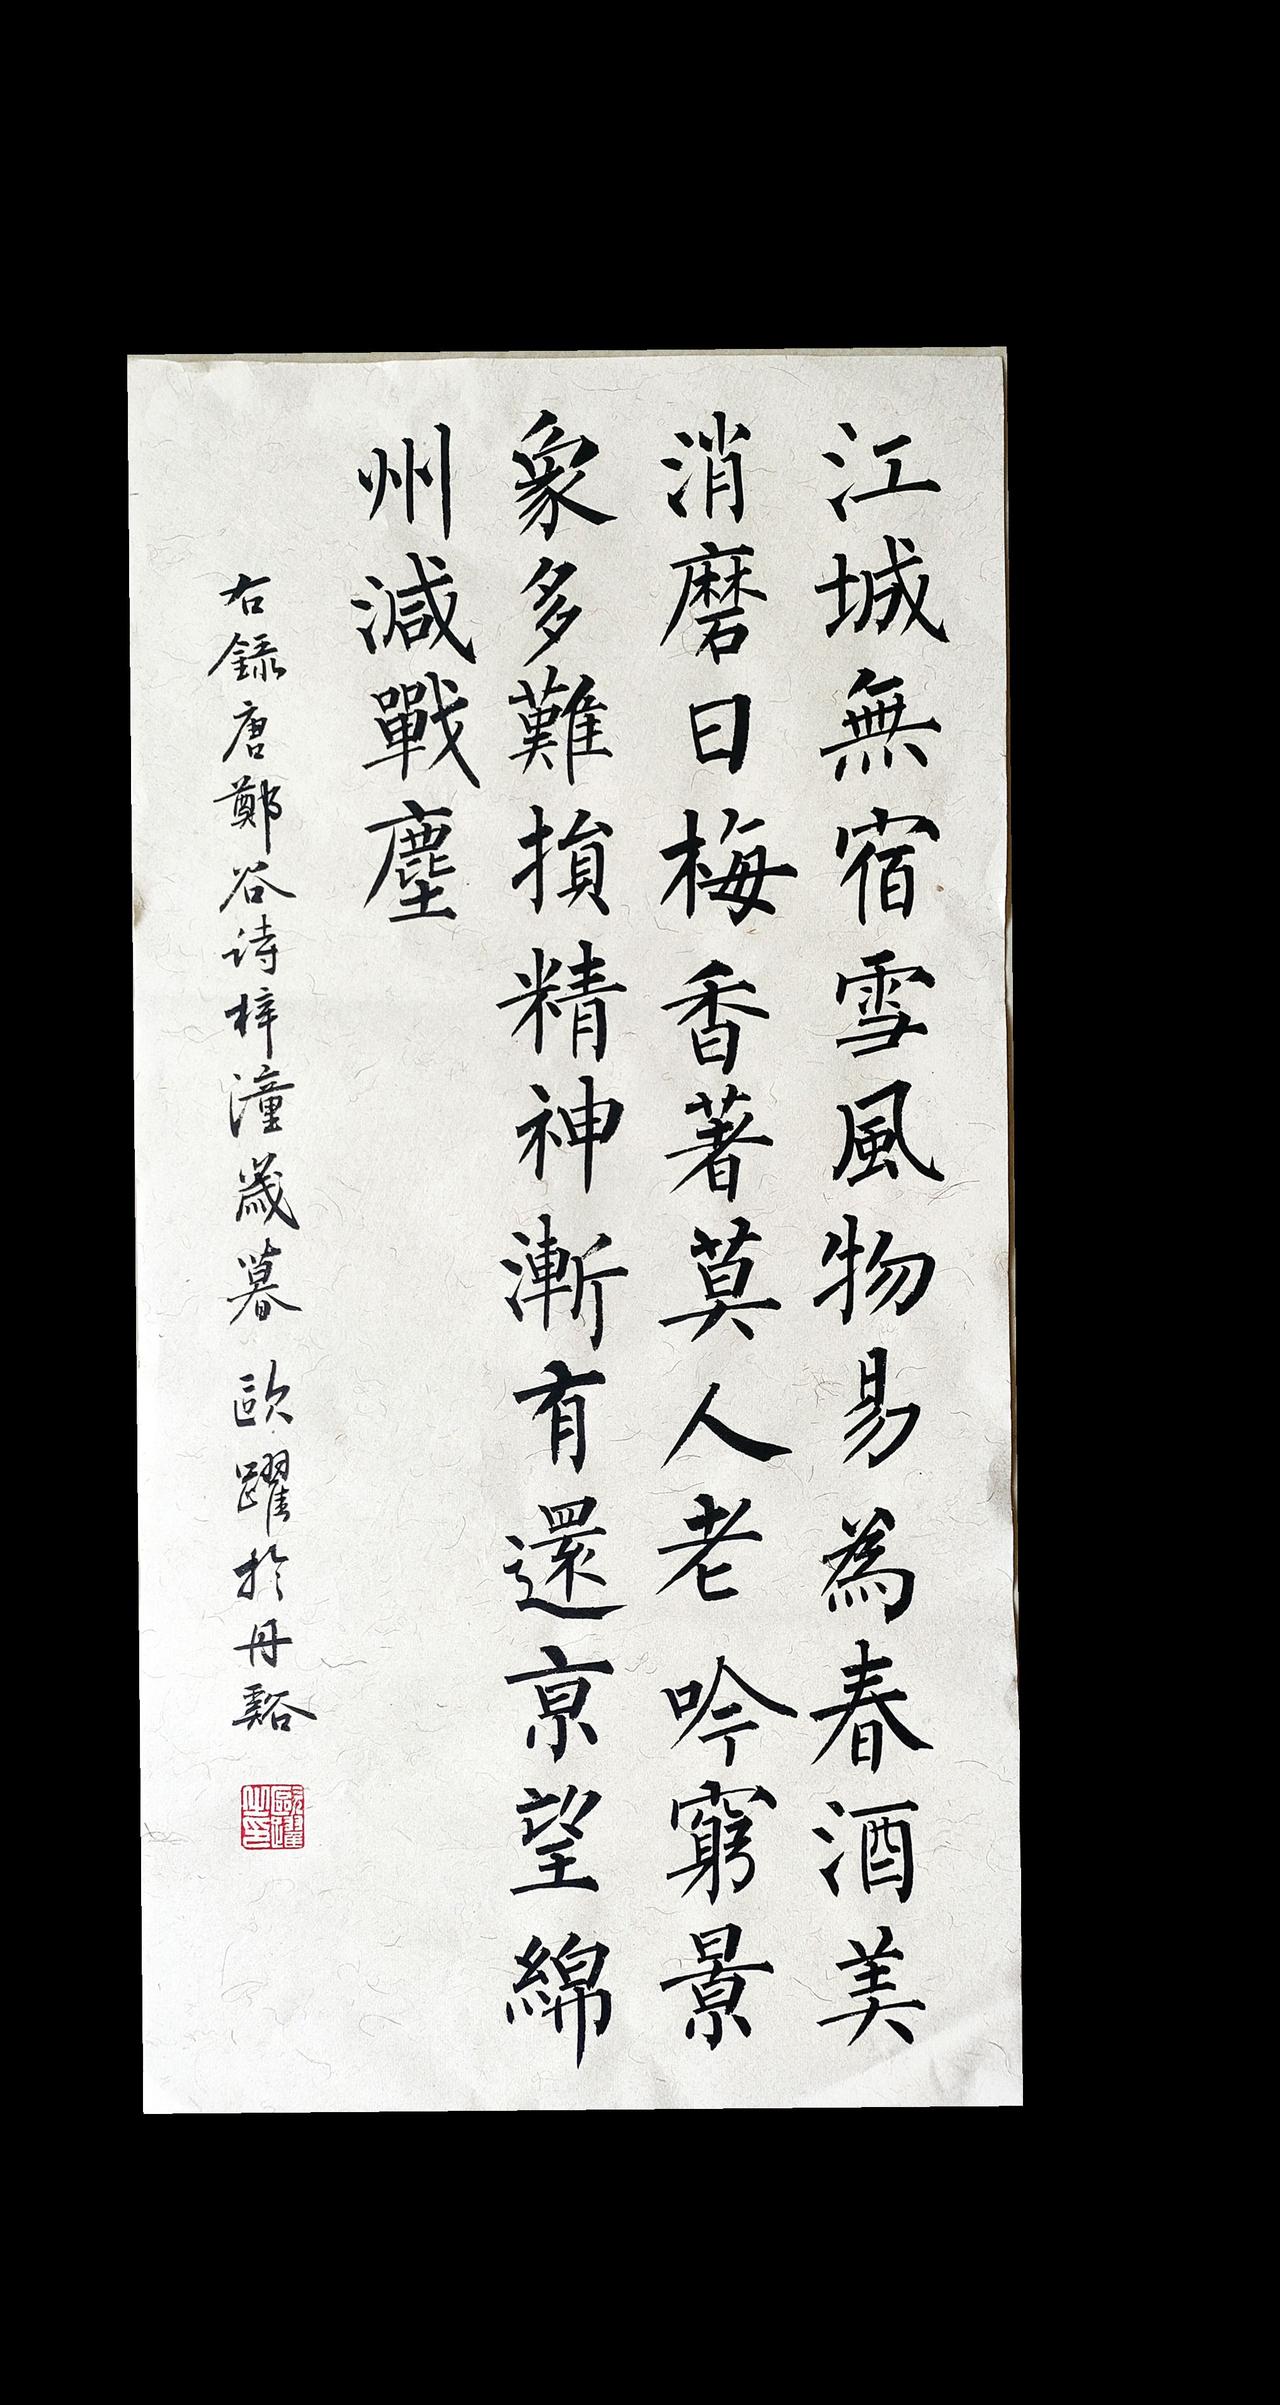 江城無宿雪風物易為春酒美
消磨日梅香著莫人老吟窮景
象多難損精神漸有還京望綿
州減戰塵
右録唐鄭谷诗梓潼歲暮 歐躍於丹谿
歐躍之印